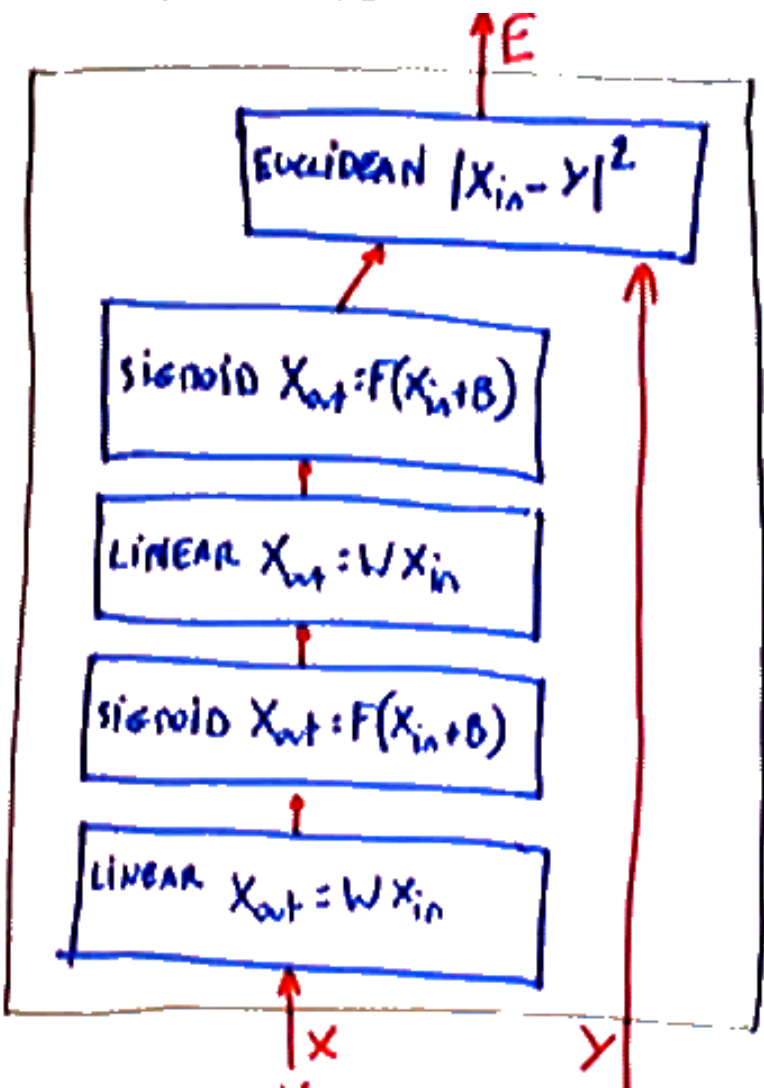 E
EUCLIDEAN |Xin - Y|²
SIGMOID Xout = F(Xin+B)
LINEAR Xout = W Xin
SIGMOID Xout = F(Xin+B)
LINEAR Xout = W Xin
X
Y